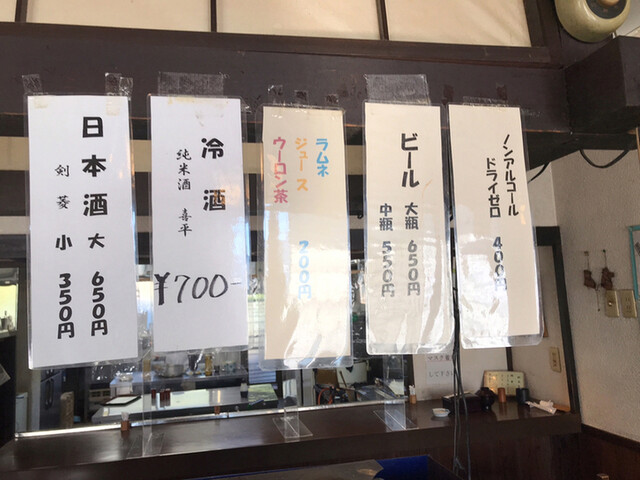 ノンアルコール
ドライゼロ 400円
ビール 大瓶 650円
中瓶 550円
ラムネ
ジュース 200円
ウーロン茶
冷酒
純米酒 喜平
¥700-
日本酒 大 650円
剣菱 小 350円
して下さい